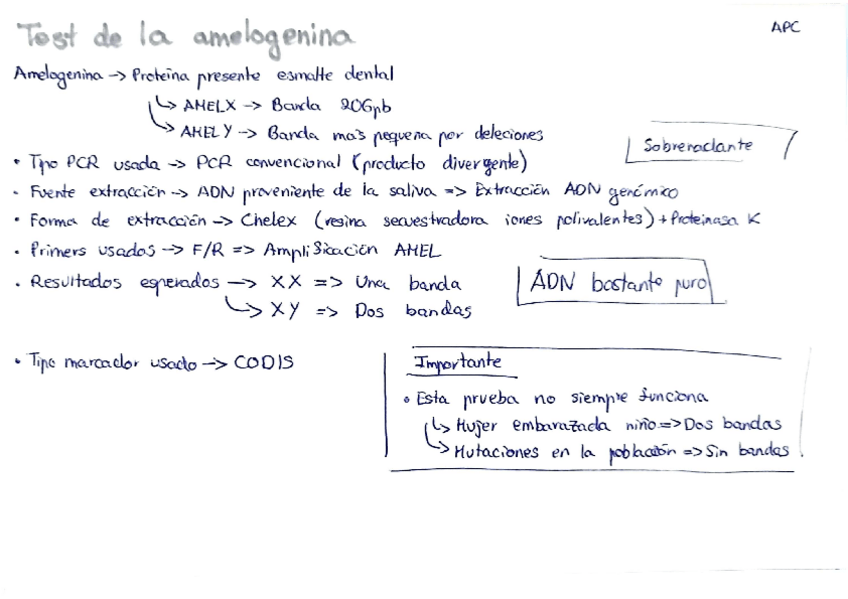 Test de la amelogenina
APC
Amelogenina -> Proteína presente esmalte dental
↳ AMELX -> Banda 206pb
↳ AMELY -> Banda mas pequeña por deleciones
Sobrenadante
• Tipo PCR usada -> PCR convencional (producto divergente)
• Fuente extracción -> ADN proveniente de la saliva => Extracción ADN genómico
• Forma de extracción -> Chelex (resina secuestradora iones polivalentes) + Proteinasa K
• Primers usados -> F/R => Amplificación AMEL
• Resultados esperados -> XX => Una banda
↳ XY => Dos bandas
ADN bastante puro
• Tipo marcador usado -> CODIS
Importante
• Esta prueba no siempre funciona
↳ Mujer embarazada niño => Dos bandas
↳ Mutaciones en la población => Sin bandas